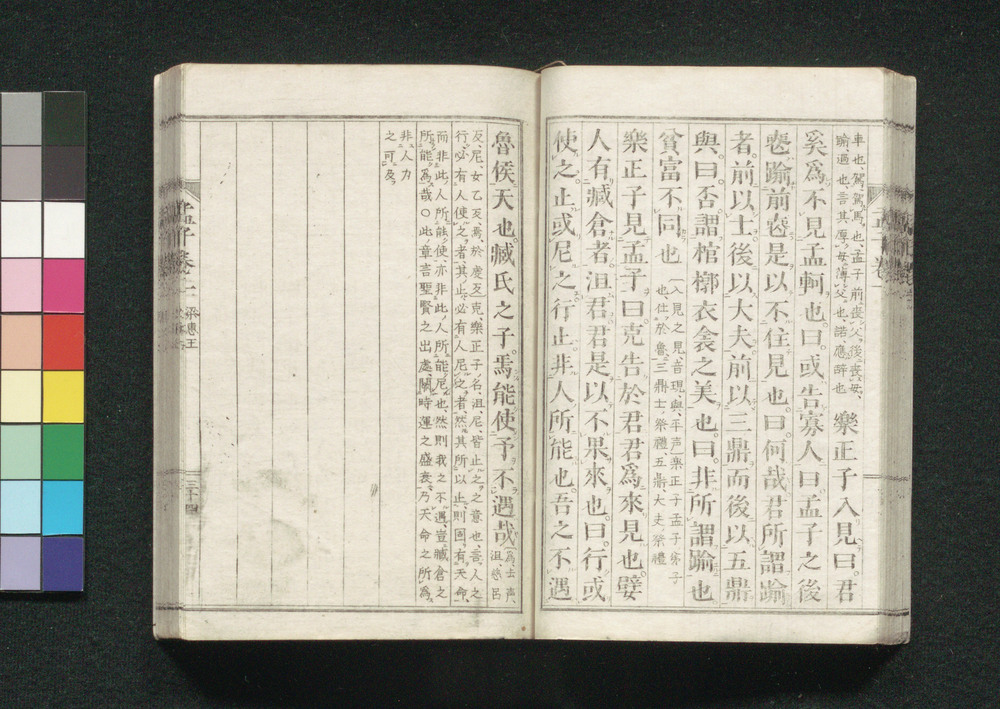 車也、駕、駕馬也、孟子前喪父、後喪母、
踰、過也、言其厚母薄父也、諾、應辭也
樂正子入見曰。君
奚爲不見孟軻也。曰。或告寡人曰孟子之後
喪踰前喪是以不往見也。曰何哉君所謂踰
者。前以士。後以大夫。前以三鼎而後以五鼎
與。曰。否。謂棺槨衣衾之美也。曰。非所謂踰也
貧富不同也
入見之見、音現、與、平声、樂正子、孟子弟子
也、仕於魯、三鼎、士祭禮、五鼎、大夫祭禮
樂正子見孟子曰。克告於君君爲來見也。嬖
人有臧倉者。沮君君是以不果來也。曰。行或
使之止或尼之行止非人所能也。吾之不遇
魯侯天也。臧氏之子。焉能使予不遇哉
爲、去声、
沮、慈呂
反、尼、女乙反、焉、於虔反、克、樂正子名、沮、尼、皆止之之意也、言、人之
行、必有人使之者、其止、必有人尼之者、然其所以止、則固有天命、
而非此人所能使、亦非此人所能尼也、然則我之不遇、豈臧倉之
所能爲哉○此章言聖賢之出處、關時運之盛衰乃天命之所爲、
非人力
之可及
孟子卷一
梁惠王
三十四